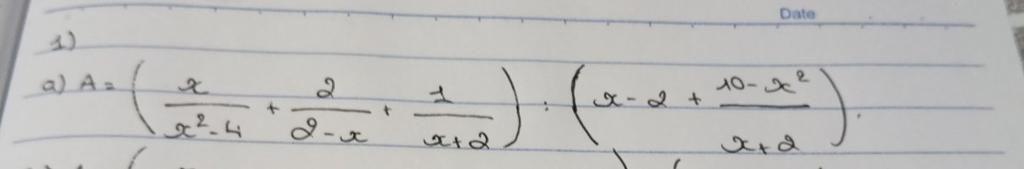 Date
1)
a) A = ( x/(x² - 4) + 2/(2 - x) + 1/(x + 2) ) : ( x - 2 + (10 - x²)/(x + 2) ).